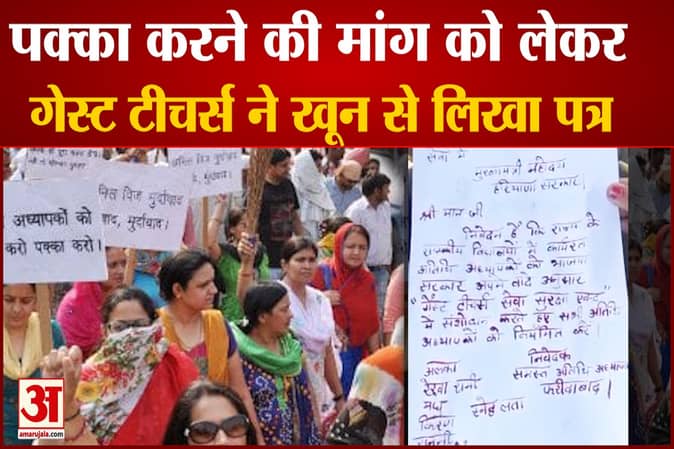 पक्का करने की मांग को लेकर
गेस्ट टीचर्स ने खून से लिखा पत्र
अध्यापकों को
करो पक्का करो।
विज मुर्दाबाद
बाद, मुर्दाबाद।
सेवा में
मुख्यमंत्री महोदय
हरियाणा सरकार।
श्री मान जी
निवेदन है कि राज्य के
राजकीय विद्यालयों में कार्यरत
अतिथि अध्यापकों को भाजपा
सरकार अपने वादे अनुसार
"गेस्ट टीचर्स सेवा सुरक्षा एक्ट"
में संशोधन करते हुए सभी अतिथि
अध्यापकों को नियमित करें।
निवेदक
समस्त अतिथि अध्यापक
फरीदाबाद।
अलका
रेखा रानी
स्नेह लता
किरण
अ
amarujala.com